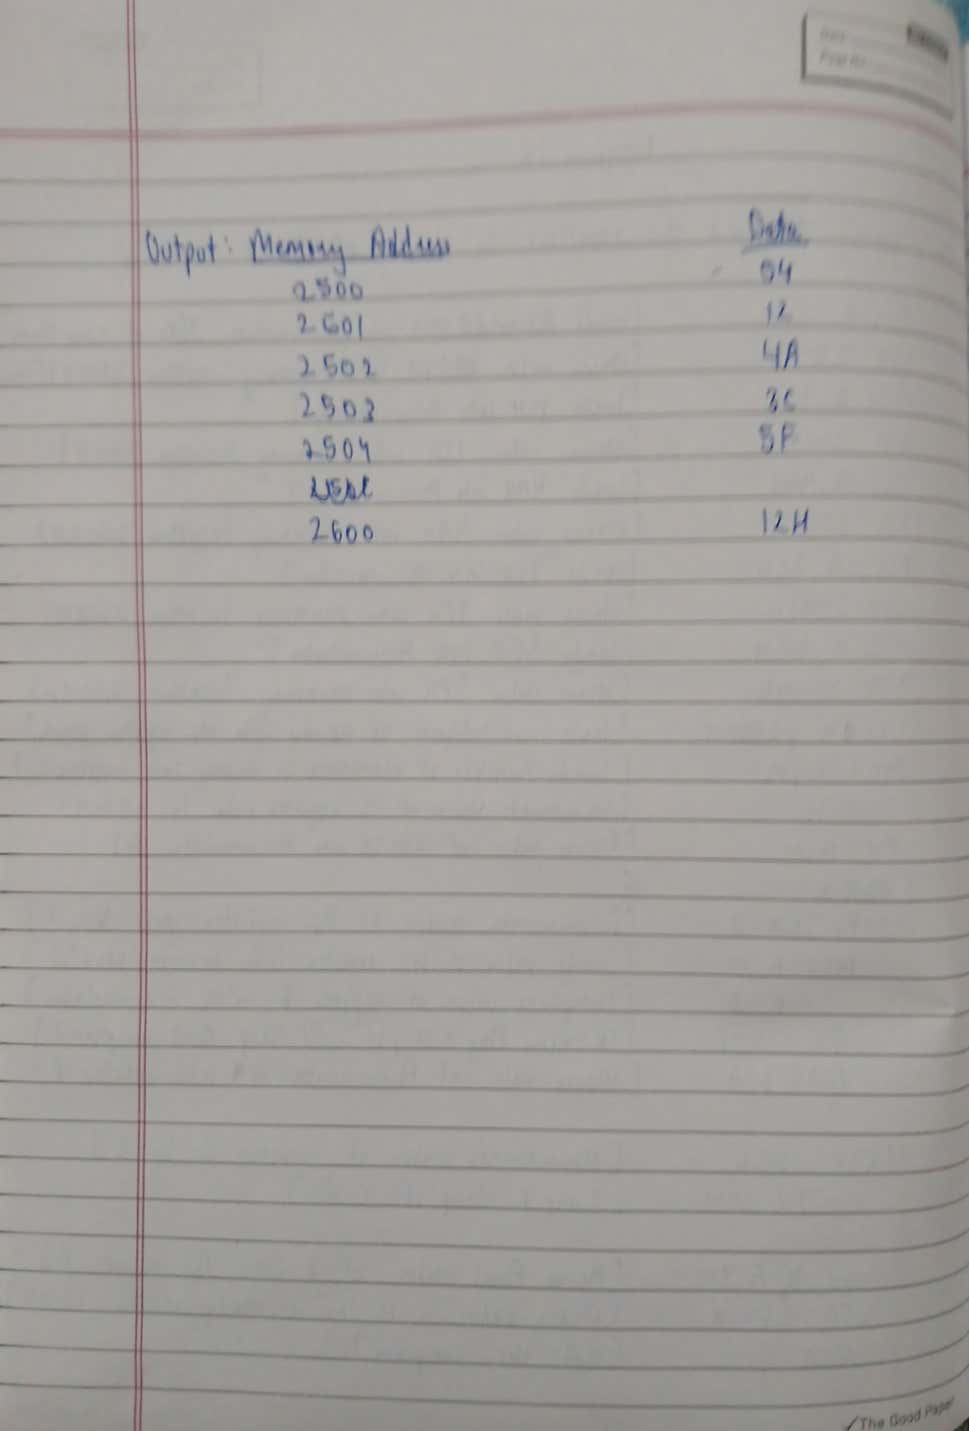 Date
Page No.
Output: Memory Address Data
2500 04
2601 12
2502 4A
2503 3C
2504 5F
2600 12H
The Good Paper